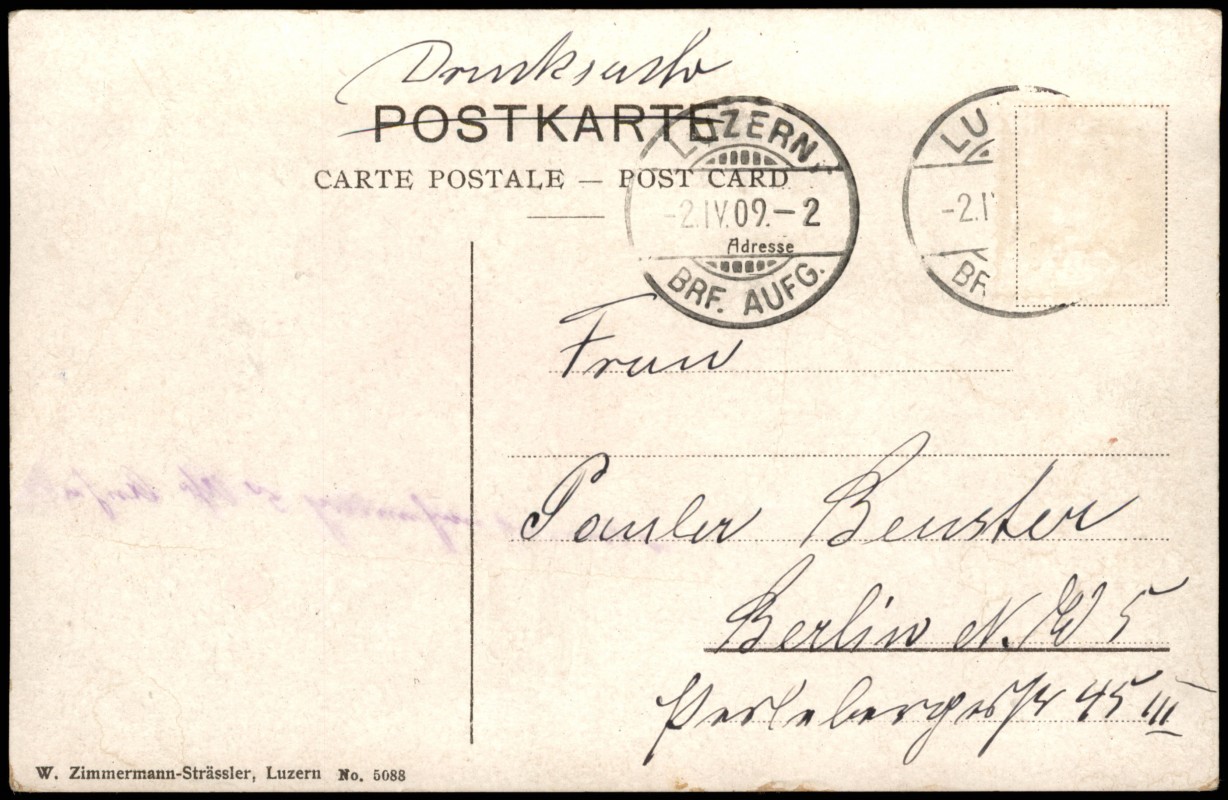 Drucksache
POSTKARTE
CARTE POSTALE — POST CARD
LUZERN
-2.IV.09.-2
BRF. AUFG.
LU
-2.I
BR
Adresse
Frau
Beuster
Berlin N.W 5
Perlebergerstr 45 III
W. Zimmermann-Strässler, Luzern No. 5088